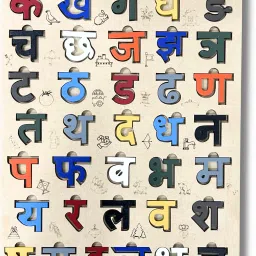 क ख ग घ ङ
च छ ज झ ञ
ट ठ ड ढ ण
त थ द ध न
प फ ब भ म
य र ल व श